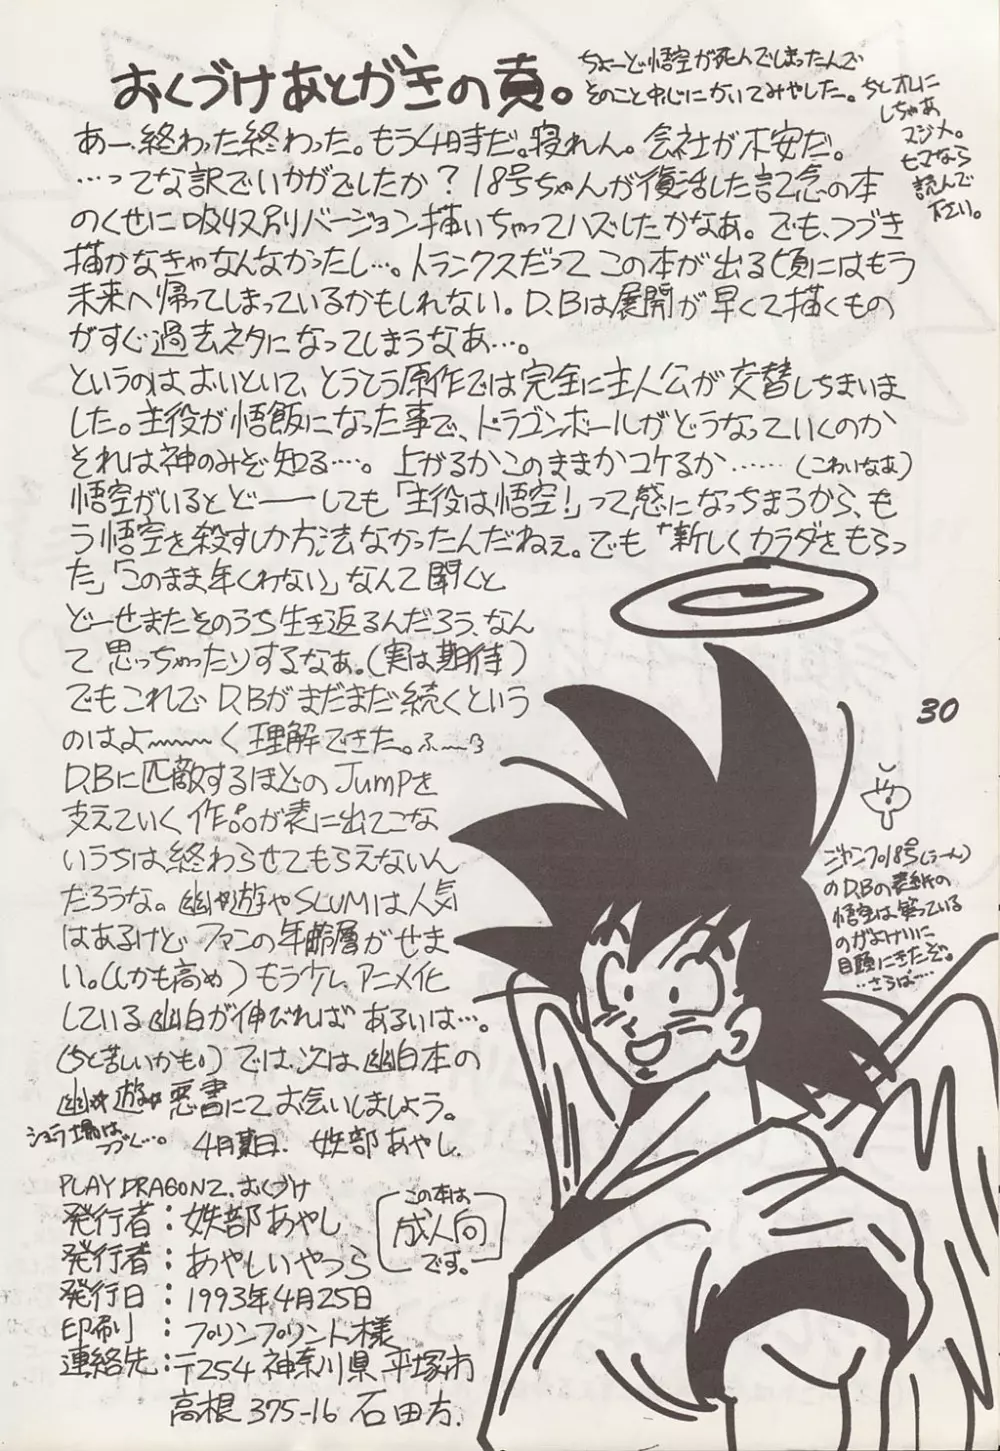 おくづけあとがきの頁。
ちょーど悟空が死んでしまったんで
そのこと中心にかいてみやした。ちとオレに
しちゃあ
マジメ。
ヒマなら
読んで
下さい。
あー、終わった終わった。もう4時だ。寝れん。会社が不安だ。
…ってな訳でいかがでしたか?18号ちゃんが復活した記念の本
のくせに吸収別バージョン描いちゃってハズしたかなあ。でも、つづき
描かなきゃなんなかったし…。トランクスだってこの本が出る頃にはもう
未来へ帰ってしまっているかもしれない。D.Bは展開が早くて描くもの
がすぐ過去ネタになってしまうなあ…。
というのは、おいといて、とうとう原作では完全に主人公が交替しちまいま
した。主役が悟飯になった事で、ドラゴンボールがどうなっていくのか
それは神のみぞ知る…。上がるかこのままかコケるか……(こわいなあ)
悟空がいるとど——しても「主役は悟空!」って感になっちまうから、も
う悟空を殺すしか方法なかったんだねぇ。でも「新しくカラダをもらっ
た」「このまま年くわない」なんて聞くと
どーせまたそのうち生き返るんだろう、なん
て思っちゃったりするなあ。(実は期待)
でもこれでD.Bがまだまだ続くという
のはよ〜〜〜く理解できた。ふ〜っ
D.Bに匹敵するほどのJumpを
支えていく作品が表に出てこな
いうちは、終わらせてもらえないん
だろうな。幽☆遊やSLUMは人気
はあるけどファンの年齢層がせま
い。(しかも高め)もうすぐアニメ化
している幽白が伸びればあるいは…。
(ちと苦しいかも。)では、次は、幽白本の
幽☆遊☆悪書にてお会いしましょう。
4月 日. 妖部あやし.
30
ジャンプ18号(うーん)
のD.Bの表紙の
悟空は、笑っている
のがよけいに
目頭にきたぞ。
…さらば……
PLAY DRAGON2. おくづけ
発行者：妖部あやし
発行者：あやしいやつら
発行日：1993年4月25日
印刷：プリンプリント様
連絡先：〒254 神奈川県平塚市
高根375-16 石田方.
この本は
成人向
です。